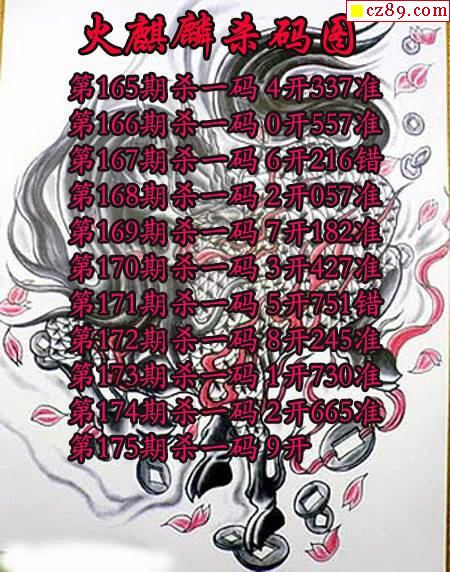 cz89.com
火麒麟杀码图
第165期杀一码 4开337准
第166期杀一码 0开557准
第167期杀一码 6开216错
第168期杀一码 2开057准
第169期杀一码 7开182准
第170期杀一码 3开427准
第171期杀一码 5开751错
第172期杀一码 8开245准
第173期杀一码 1开730准
第174期杀一码 2开665准
第175期杀一码 9开